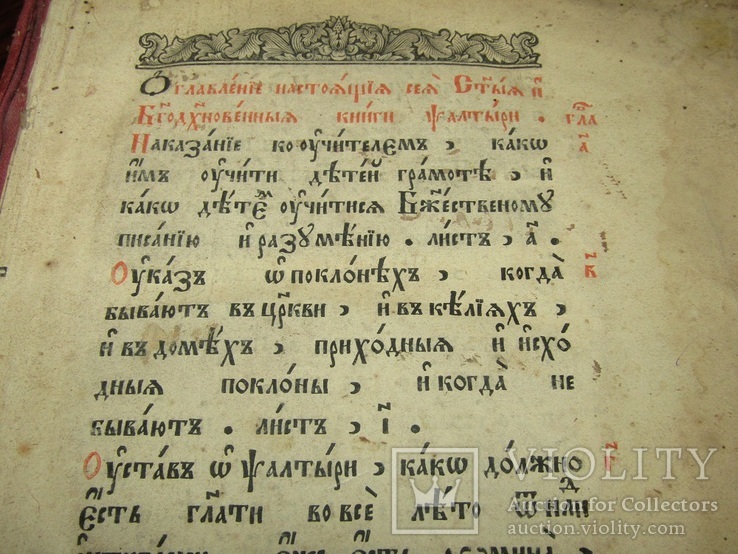 Ѻглавле́нїе настоѧ́щїѧ сеѧ̀ Ст҃ы́ѧ и҆
Бг҃одх҃нове́нныѧ кни́ги ѱалты́ри . гла
Наказа́нїе ко ᲂу҆чи́телемъ , ка́кѡ а҃
и҆́мъ ᲂу҆чи́ти дѣте́й гра́мотѣ , и҆
ка́кѡ дѣ́темъ ᲂу҆чи́тисѧ Бж҃е́ственому
писа́нїю и҆ разумѣ́нїю . ли́стъ , а҃ .
Оу҆ка́зъ ѡ҆ покло́нѣхъ , когда̀ в҃
быва́ютъ въ цр҃кви , и҆ въ ке́лїѧхъ ,
и҆ въ домѣ́хъ , прихо́дныѧ и҆ и҆схо́
дныѧ покло́ны , и҆ когда̀ не
быва́ютъ . ли́стъ , і҃ .
Оу҆ста́въ ѡ҆ ѱалты́ри , ка́кѡ до́лжно г҃
є҆́сть гл҃ати во всѐ лѣ́то
VIOLITY
Auction for Collectors
auction.violity.com